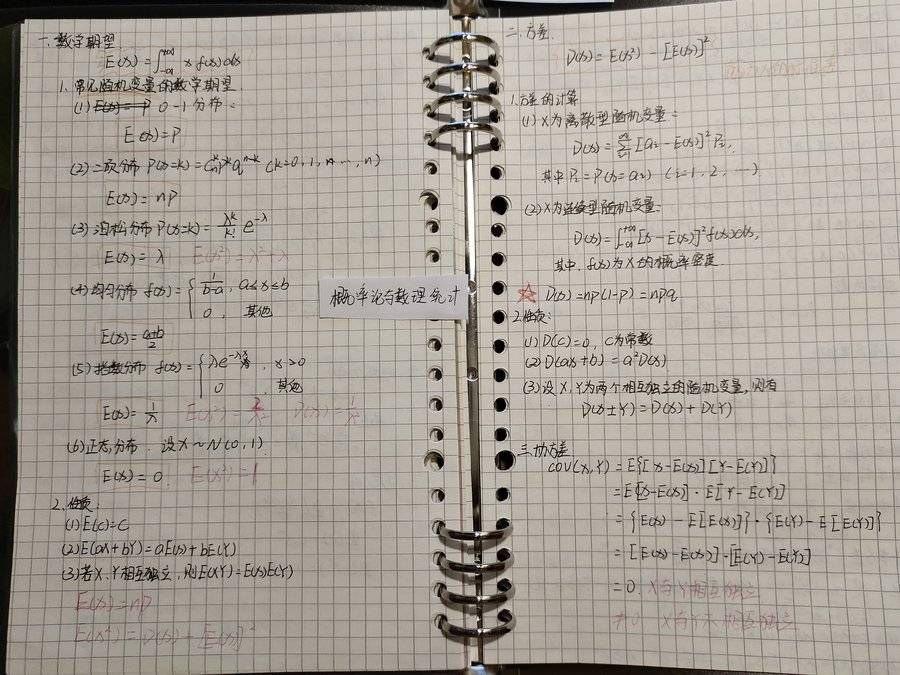 一、数学期望
E(X)=∫_{-∞}^{+∞} x f(x)dx
1. 常见随机变量的数学期望
(1) 0-1分布：
E(X)=P
(2) 二项分布 P(X=k)=C_n^k p^k q^{n-k} (k=0,1,…,n)
E(X)=np
(3) 泊松分布 P(X=k)=λ^k/k! e^{-λ}
E(X)=λ E(X²)=λ²+λ
(4) 均匀分布 f(x)={ 1/(b-a), a≤x≤b
0, 其他
E(X)=(a+b)/2
(5) 指数分布 f(x)={ λe^{-λx}, x>0
0 其他
E(X)=1/λ E(X²)=2/λ² D(X)=1/λ²
(6) 正态分布. 设X~N(0,1)
E(X)=0. E(X²)=1
2. 性质:
(1) E(C)=C
(2) E(aX+bY)=aE(X)+bE(Y)
(3) 若X,Y相互独立,则E(XY)=E(X)E(Y)
E(X)=np
E(X²)=D(X)+[E(X)]²
概率论与数理统计
二、方差
D(X)=E(X²)-[E(X)]²
1. 方差的计算
(1) X为离散型随机变量:
D(X)=∑_{i=1}^{∞}[a_i-E(X)]²P_i,
其中P_i=P(X=a_i) (i=1,2,…)
(2) X为连续型随机变量:
D(X)=∫_{-∞}^{+∞}[x-E(X)]²f(x)dx,
其中,f(x)为X的概率密度
☆ D(X)=np(1-p)=npq
2. 性质:
(1) D(C)=0, C为常数
(2) D(aX+b)=a²D(X)
(3) 设X,Y为两个相互独立的随机变量,则有
D(X±Y)=D(X)+D(Y)
三.协方差
COV(X,Y)=E{[X-E(X)][Y-E(Y)]}
=E[X-E(X)]·E[Y-E(Y)]
={E(X)-E[E(X)]}·{E(Y)-E[E(Y)]}
=[E(X)-E(X)]·[E(Y)-E(Y)]
=0, X与Y相互独立
≠0 X与Y不相互独立